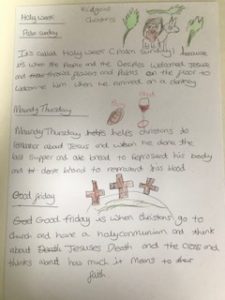 Holy week
Palm Sunday
It's called Holy week (Palm Sunday) because
it's when the People and the Disciples welcomed Jesus
and threw flowers and Palms on the floor to
welcome him when he arrived on a donkey
Maundy Thursday
Maundy Thursday helps christians to
remember about Jesus and when he done the
last supper and ate bread to represent his body
and drank to represent his blood
Good friday
Good friday is when christians go to
church and have a holycommunion and think
about Jesuses Death and the cross and
thinks about how much it means to their
faith